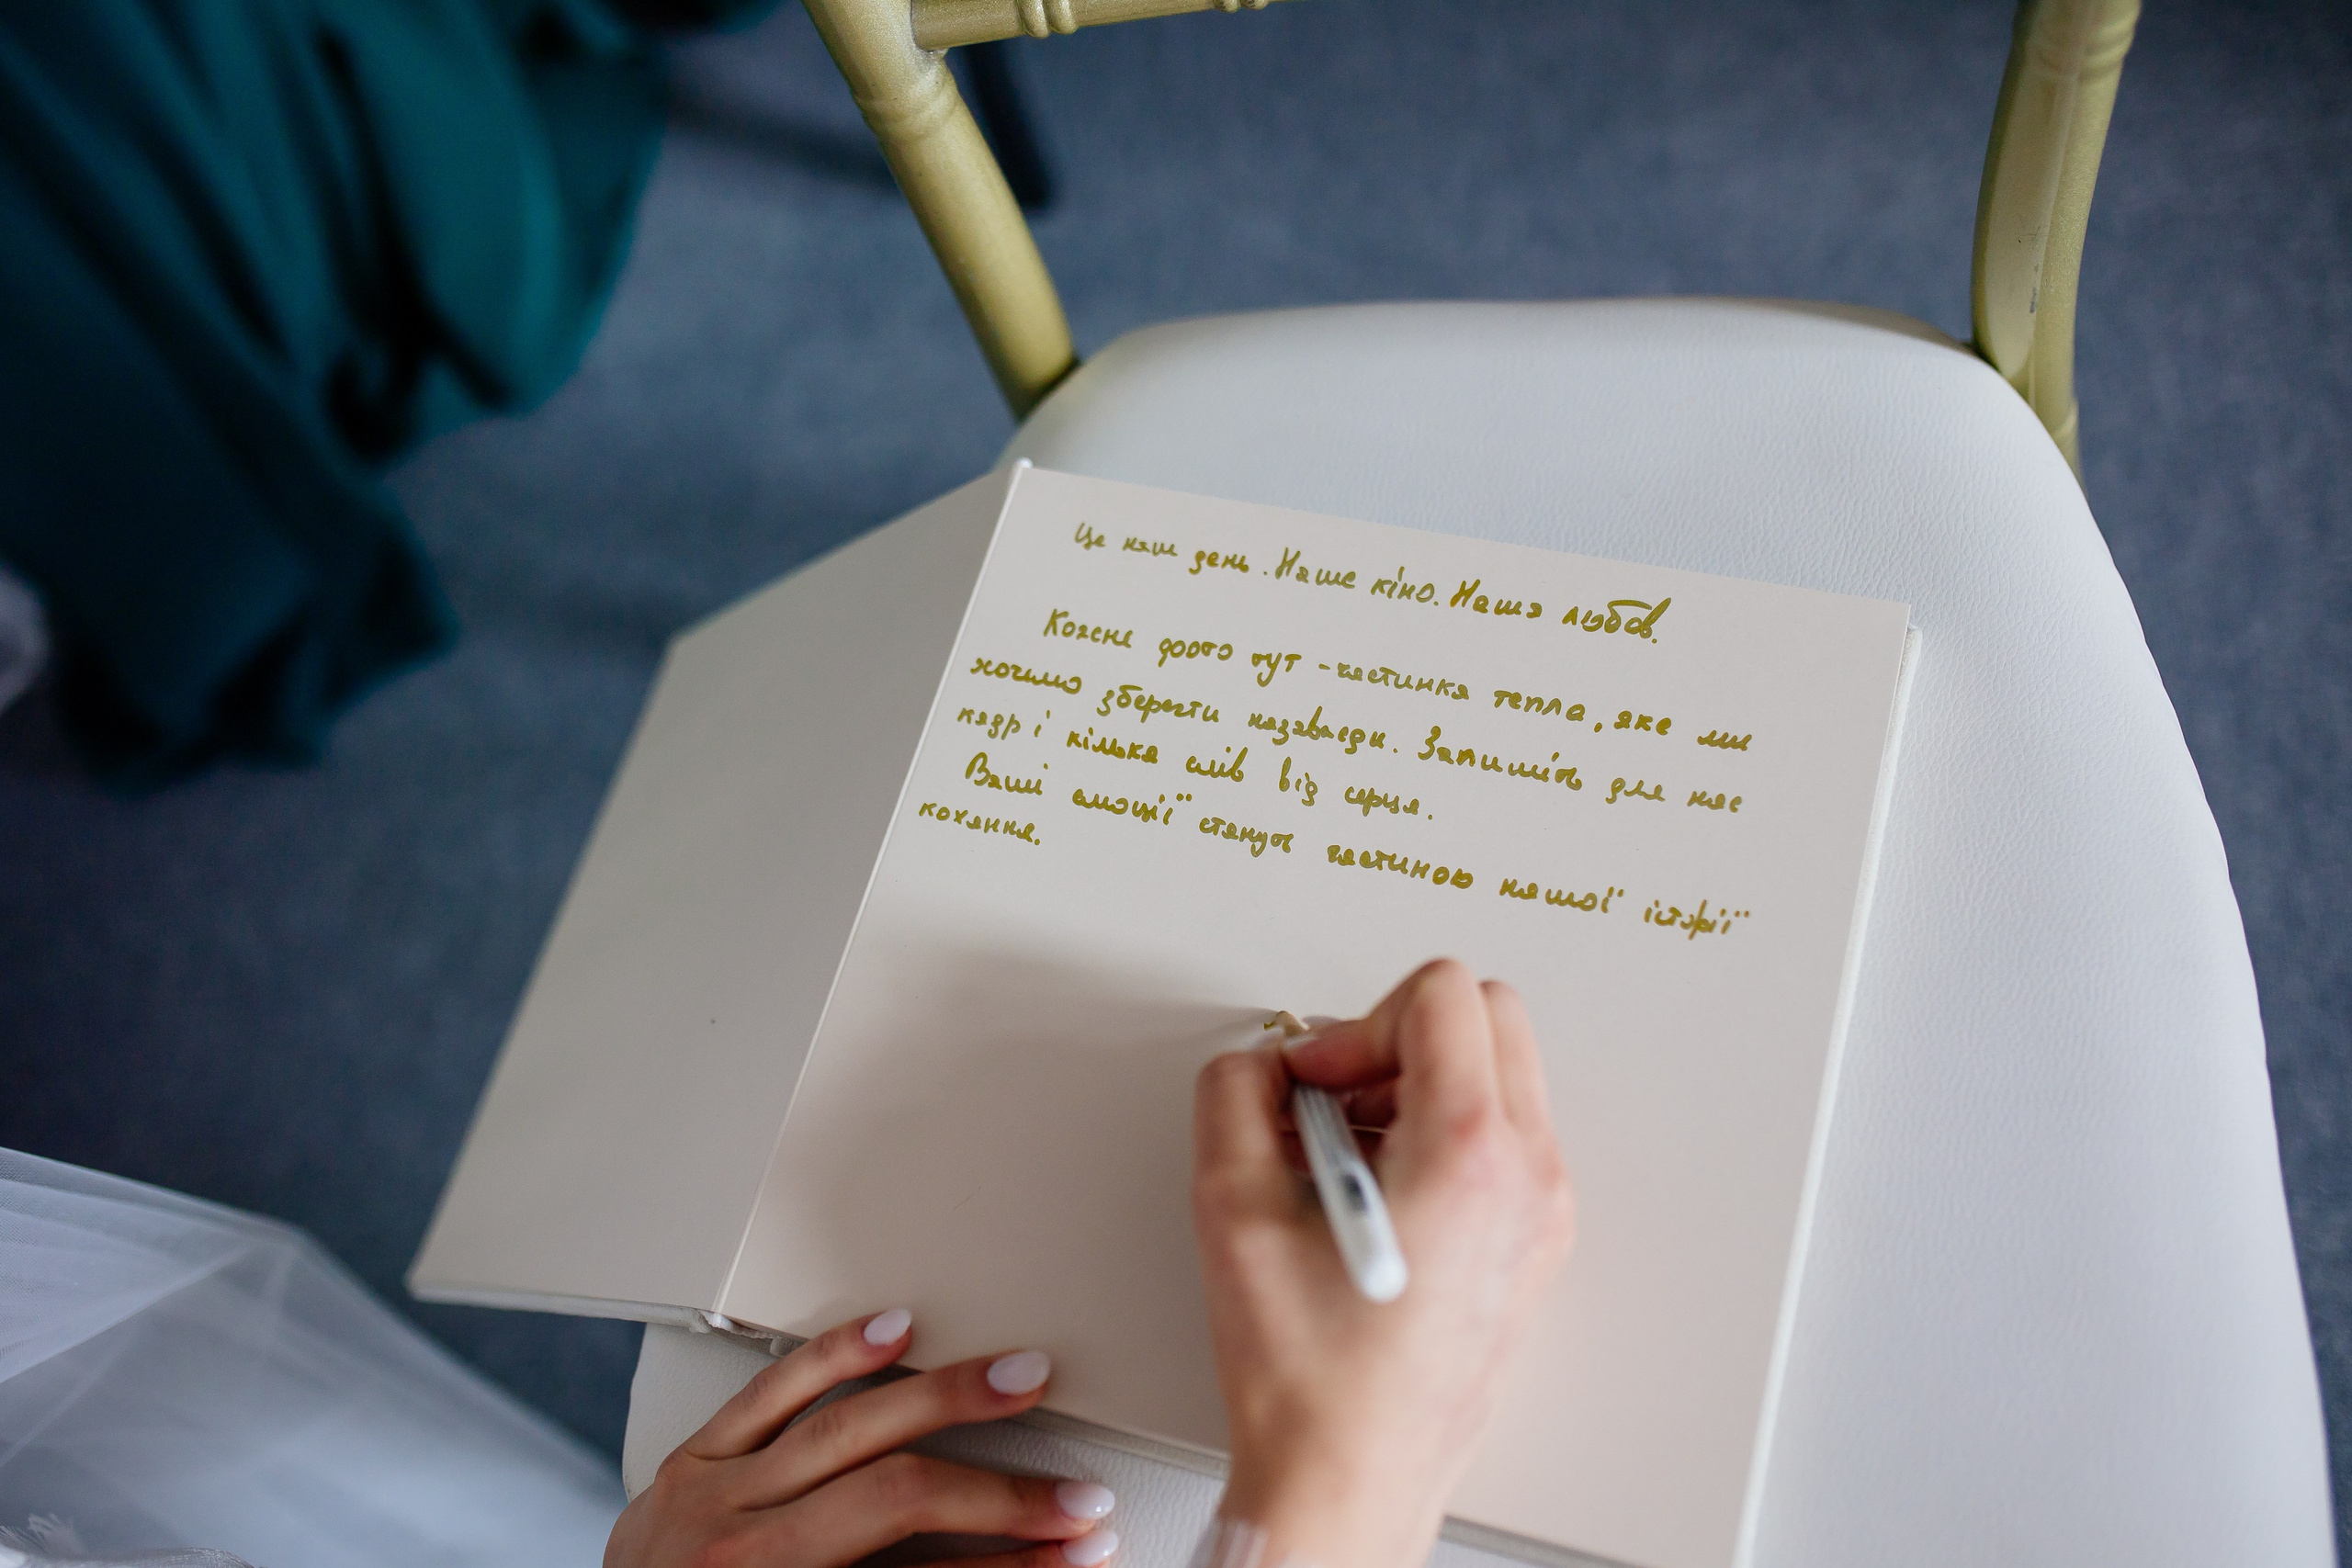 Це наш день. Наше кіно. Наша любов.
Кожне фото тут - частинка тепла, яке ми
хочимо зберегти назавжди. Запишіть для нас
кадр і кілька слів від серця.
Ваші емоції стануть частиною нашої історії
кохання.